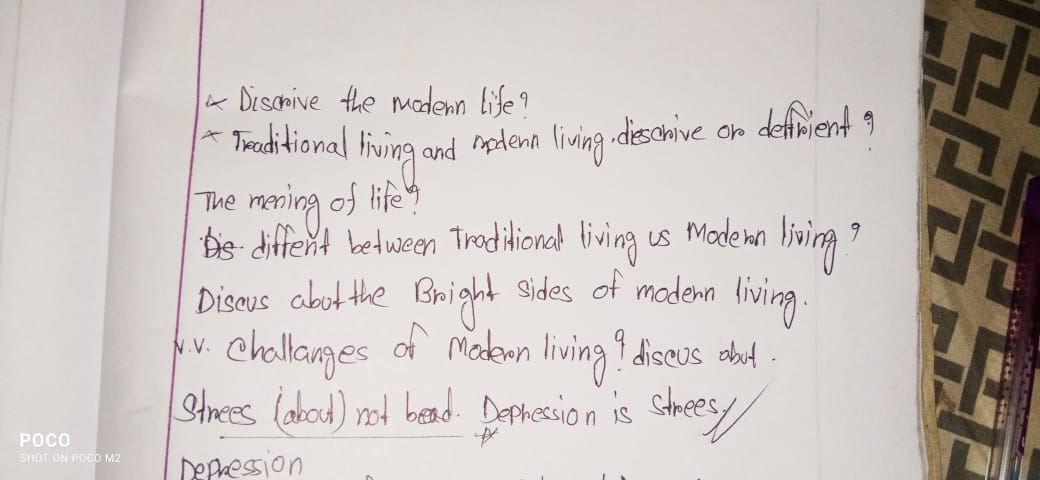 * Discrive the modern life?
* Traditional living and modern living. discrive or deffrient?
The mening of life?
diffent between Traditional living vs Modern living?
Discus abot the Bright sides of modern living.
V.V. Challanges of Modern living? discus abut.
Strees (about) not bead. Depression is strees //
Depression
POCO
SHOT ON POCO M2